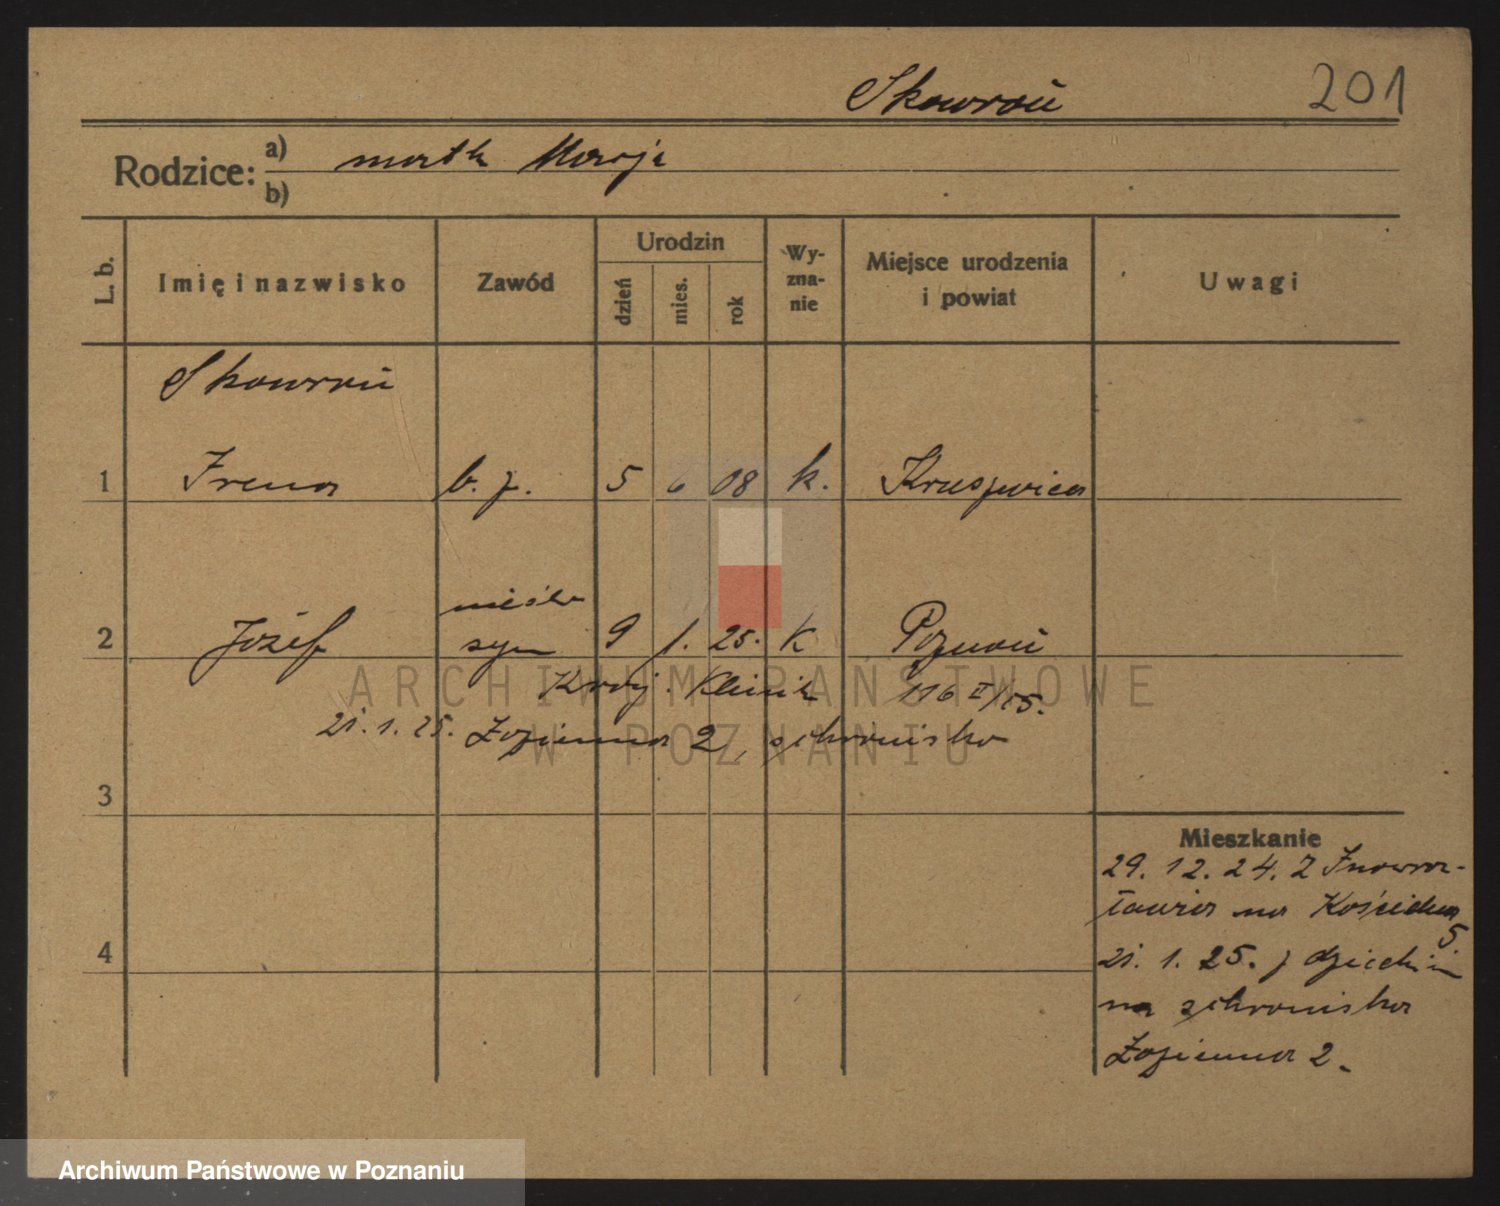 Skowroń 201
Rodzice: a) matk Marja
b)
L. b. Imię i nazwisko Zawód Urodzin dzień mies. rok Wy-zna-nie Miejsce urodzenia i powiat Uwagi
Skowroń
1 Irena b. z. 5 6 08 k. Kruszwica
nieśl.
2 Józef syn 9 1. 25. K Poznań
Kraj. Klinik 116 II/25.
21. 1. 25. Łazienna 2, schronisko
3
Mieszkanie
29. 12. 24. z Inowro-
cławia na
5.
4 21. 1. 25. z dzieckiem
na schronisko
Łazienna 2.
ARCHIWUM PAŃSTWOWE
W POZNANIU
Archiwum Państwowe w Poznaniu